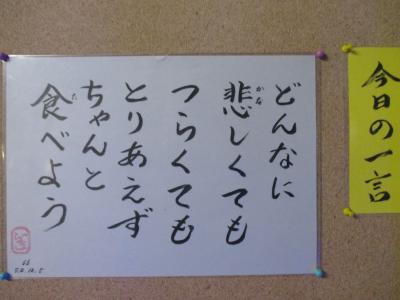 今日の一言
どんなに
悲しくても
つらくても
とりあえず
ちゃんと
食べよう